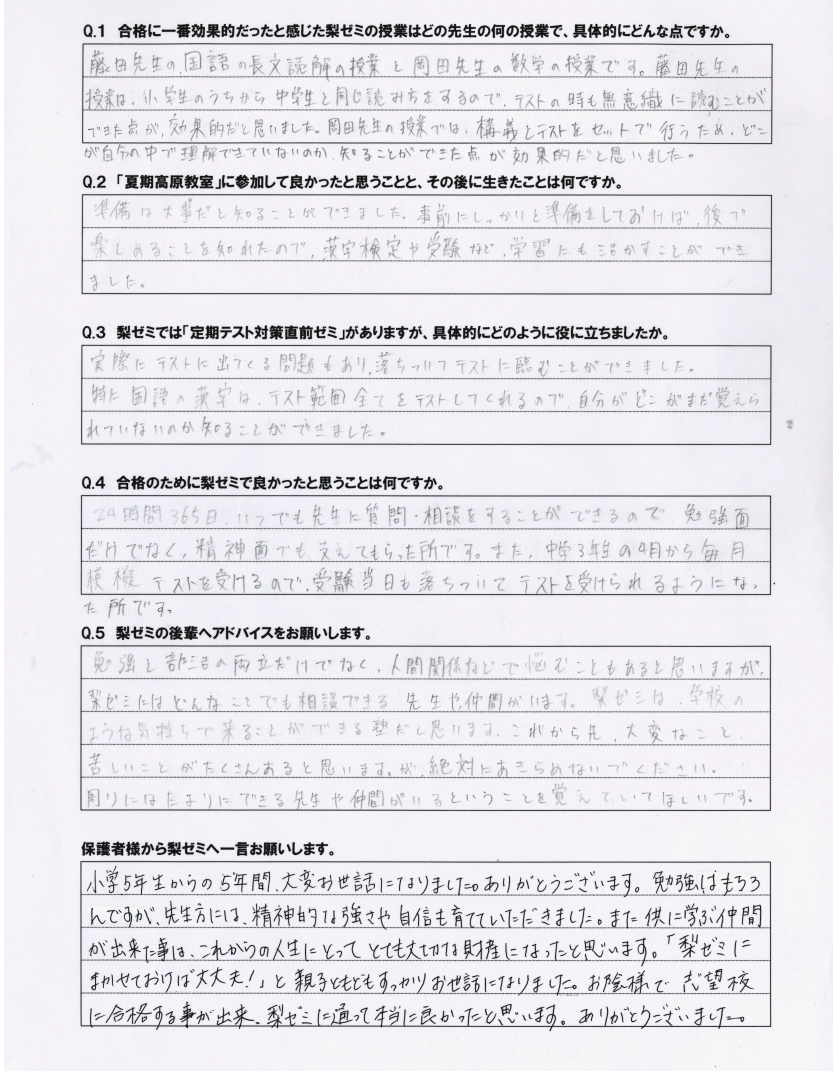 Q.1 合格に一番効果的だったと感じた梨ゼミの授業はどの先生の何の授業で、具体的にどんな点ですか。
藤田先生の国語の長文読解の授業と岡田先生の数学の授業です。藤田先生の
授業は、小学生のうちから中学生と同じ読み方をするので、テストの時も無意識に読むことが
できた点が、効果的だと思いました。岡田先生の授業では、構義とテストをセットで行うため、どこ
が自分の中で理解できていないのか、知ることができた点が効果的だと思いました。
Q.2 「夏期高原教室」に参加して良かったと思うことと、その後に生きたことは何ですか。
準備は大事だと知ることができました。事前にしっかりと準備をしておけば、後で
楽しめることを知れたので、漢字検定や受験など、学習にも活かすことができ
ました。
Q.3 梨ゼミでは「定期テスト対策直前ゼミ」がありますが、具体的にどのように役に立ちましたか。
実際にテストに出てくる問題もあり、落ちついてテストに臨むことができました。
特に国語の漢字は、テスト範囲全てをテストしてくれるので、自分がどこがまだ覚えら
れていないのか知ることができました。
Q.4 合格のために梨ゼミで良かったと思うことは何ですか。
24時間365日、いつでも先生に質問・相談をすることができるので、勉強面
だけでなく、精神面でも支えてもらった所です。また、中学3年生の4月から毎月
模擬テストを受けるので、受験当日も落ちついてテストを受けられるようになっ
た所です。
Q.5 梨ゼミの後輩へアドバイスをお願いします。
勉強と部活の両立だけでなく、人間関係などで悩むこともあると思いますが、
梨ゼミにはどんなことでも相談できる先生や仲間がいます。梨ゼミは、学校の
ような気持ちで来ることができる塾だと思います。これから先、大変なこと、
苦しいことがたくさんあると思います。が、絶対にあきらめないでください。
周りにはたよりにできる先生や仲間がいるということを覚えていてほしいです。
保護者様から梨ゼミへ一言お願いします。
小学5年生からの5年間、大変お世話になりました。ありがとうございます。勉強はもちろ
んですが、先生方には、精神的な強さや自信も育てていただきました。また供に学ぶ仲間
が出来た事は、これからの人生にとってとても大切な財産になったと思います。「梨ゼミに
まかせておけば大丈夫!」と親子ともどもすっかりお世話になりました。お陰様で志望校
に合格する事が出来、梨ゼミに通って本当に良かったと思います。ありがとうございました。